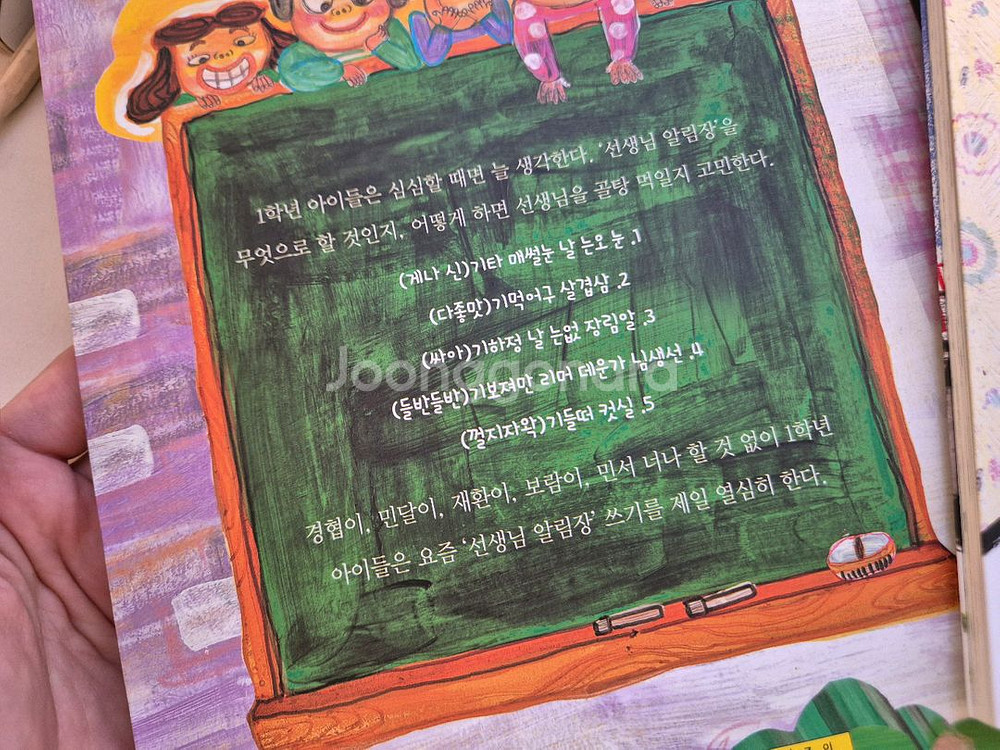 1학년 아이들은 심심할 때면 늘 생각한다. '선생님 알림장'을
무엇으로 할 것인지, 어떻게 하면 선생님을 골탕 먹일지 고민한다.
(게나 신)기타 매썰눈 날 는오 눈 .1
(다좋맛)기먹어구 살겹삼 .2
(싸아)기하정 날 는없 장림알 .3
(들반들반)기보져만 리머 데운가 님생선 .4
(껄지자왁)기들떠 컷실 .5
경협이, 민달이, 재환이, 보람이, 민서 너나 할 것 없이 1학년
아이들은 요즘 '선생님 알림장' 쓰기를 제일 열심히 한다.
Joonggonara